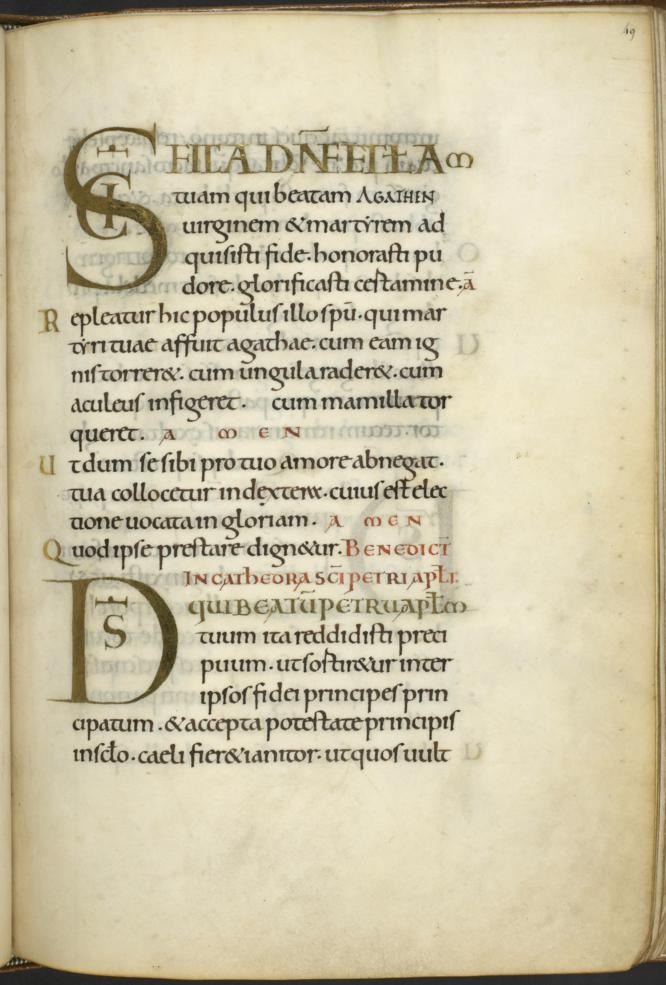 49
SC̄IFICA DN̄E ECCŁAM
tuam qui beatam AGATHEN
uirginem & martẏrem ad
quisisti fide· honorasti pu
dore· glorificasti certamine· ā
Repleatur hic populus illo spū· qui mar
tẏri tuae affuit agathae· cum eam ig
nis torrer&· cum ungula rader&· cum
aculeus infigeret· cum mamilla tor
queret· A M E N
Ut dum se sibi pro tuo amore abnegat·
tua collocetur in dexter&· cuius est elec
tione uocata in gloriam· A M E N
Quod ipse prestare dign&ur· BENEDICT
IN CATHEDRA SC̄I PETRI APŁI·
DS̄ QUI BEATŪ PETRŪ APŁM
tuum ita reddidisti preci
puum· ut sortir&ur inter
ipsos fidei principes prin
cipatum· & accepta potestate principis
in sc̄lo· caeli fier& ianitor· ut quos uult